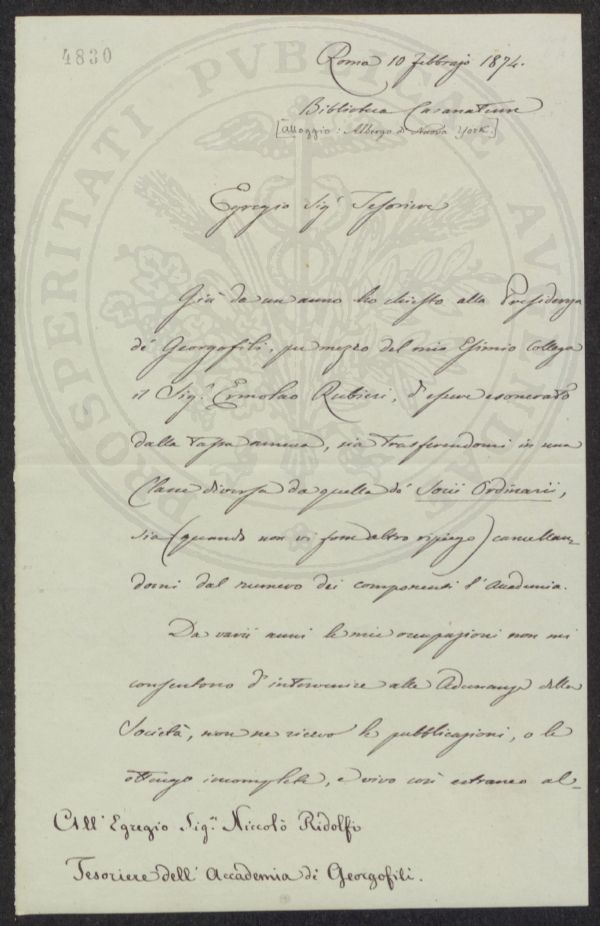 4830
PROSPERITATI PVBLICAE AVGENDAE
Roma 10 febbrajo 1874.
Biblioteca Casanatense
[alloggio: Albergo di Nuova York.]
Egregio Sigʳ Tesoriere
Già da un anno ho chiesto alla Presidenza
de' Georgofili, per mezzo del mio Esimio Collega
il Sigʳ Ermolao Rubieri, d'essere esonerato
dalla tassa annua, sia trasferendomi in una
Classe diversa da quella de' Socii Ordinarii,
sia (quando non vi fosse altro ripiego) cancellan-
domi dal numero dei componenti l'Accademia.
Da varii anni le mie occupazioni non mi
consentono d'intervenire alle Adunanze della
Società, non ne ricevo le pubblicazioni, o le
ottengo incomplete, e vivo così estraneo al-
All' Egregio Sigʳ Niccolò Ridolfi
Tesoriere dell' Accademia di Georgofili.